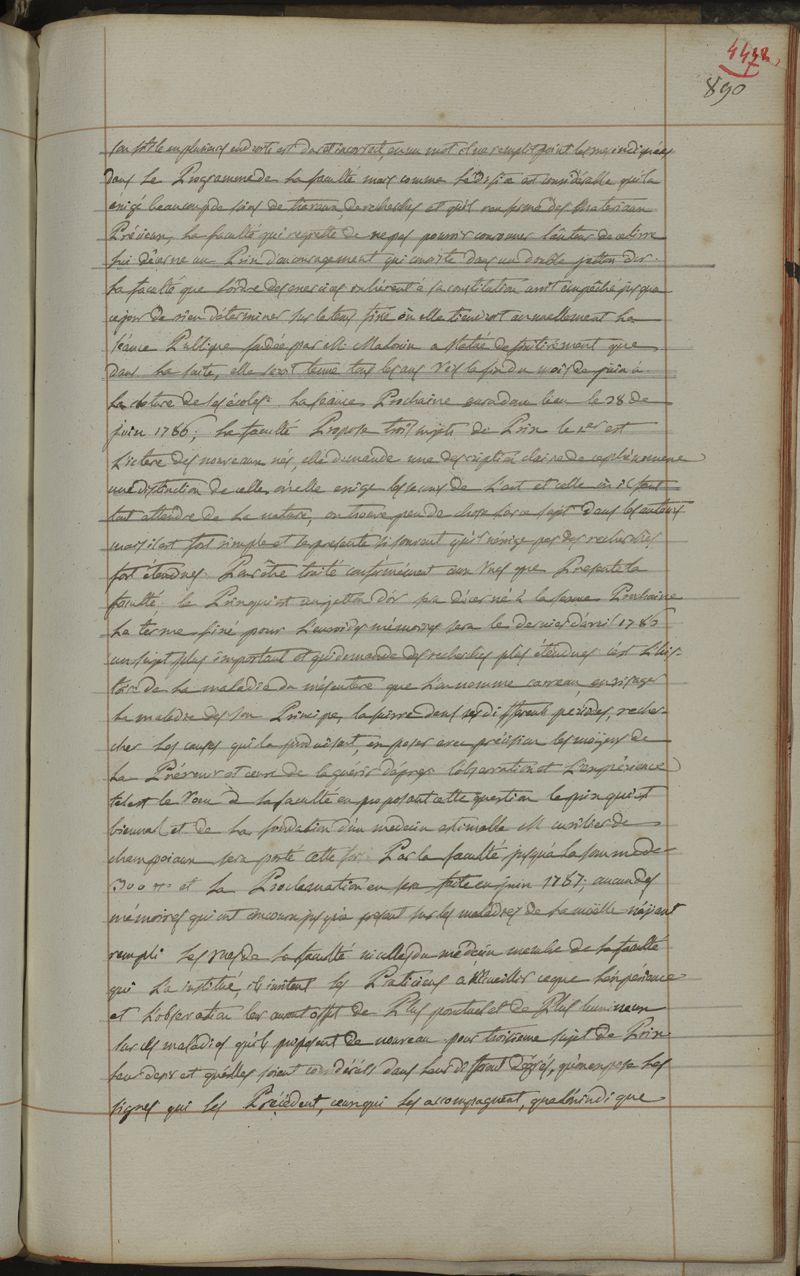 890
son stile en plusieurs endroits est dur et incorrect, en un mot il ne remplit point les vues indiquées
dans le Programme de la faculté mais comme l'édifice est considérable qu'il a
exigé beaucoup de soins de travaux, de recherches et qu'il renferme des Materiaux
Précieux, la faculté qui regrette de ne pas pouvoir couronner l'auteur de ce livre
lui décerne un Prix d'encouragement qui consiste dans un double jetton d'or.
La faculté que l'ordre des exercices inhérent à sa constitution avoit empêché jusqu'a
ce jour de rien déterminer sur le tems fixe où elle tiendroit annuellement la
séance Publique fondée par M. Malouin a Statué définitivement que
dans la suite, elle sera tenue tous les ans vers la fin du mois de juin à
la cloture de ses écoles. La séance Prochaine aura donc lieu le 28 de
juin 1786; la faculté Propose trois sujets de Prix le 1er est
L'ictère des nouveaux nés, elle demande une description claire de ce phénomene
une distinction de celle où elle exige les secours de l'art et celle où il faut
tout attendre de la nature, on trouve peu de chose sur ce sujet dans les auteurs
mais il est fort simple et se presente si souvent qu'il n'exige pas des recherches
fort étendues. Pour être traité conformément aux vues que Presente la
faculté le Prix qui est un jetton d'or sera décerné à la séance Prochaine
La terme fixé pour l'envoi des mémoires sera le dernier d'avril 1786
un sujet plus important et qui demande des recherches plus étendues c'est l'his-
toire de la maladie du mésentere que l'on nomme carreau, envisager
la maladie dès son Principe, la suivre dans ses differents periodes, recher-
cher les causes qui la produisent, exposer avec précision les moiens de
La Prévenir et ceux de la guérir d'après l'observation et l'expérience
tel est le voeu de la faculté en proposant cette question le prix qui est
biennal et de la fondation d'un medecin estimable M.
champoiaux sera porté cette fois Par la faculté jusqu'a la somme de
300 tt et la Proclamation en sera faite en juin 1787; aucun des
mémoires qui ont concouru jusqu'a présent sur les maladies de la moëlle n'aiant
rempli les vues de la faculté ni celles du médecin membre de la faculté
qui l'a institué, ils invitent les Praticiens a Recueillir ce que l'expérience
et l'observation leur auront offert de Plus ponctuel et de Plus lumineux
sur ces maladies qu'ils proposent de nouveau pour troisieme sujet de Prix
leur desir est qu'elles soient considérées dans leur different dégrés, qu'on expose les
signes qui les Précédent, ceux qui les accompagnent, qu'on indique